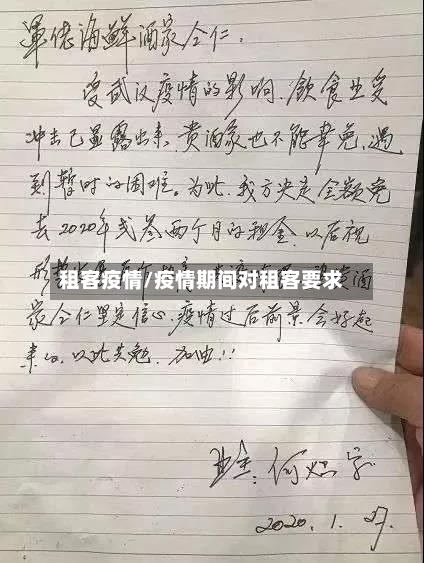 渾佬海鲜酒家仝仁:
受武汉疫情的影响,飲食业受
冲击已显露出来,贵酒家也不能幸免,遇
到暂时的困难。为此,我方决定全额免
去2020年弍叁两个月的租金,以后视
租客疫情/疫情期间对租客要求
形 酒
家仝仁坚定信心,疫情过后前景会好起
来的,以此共勉,加油!!
业主:何
2020.1.27.